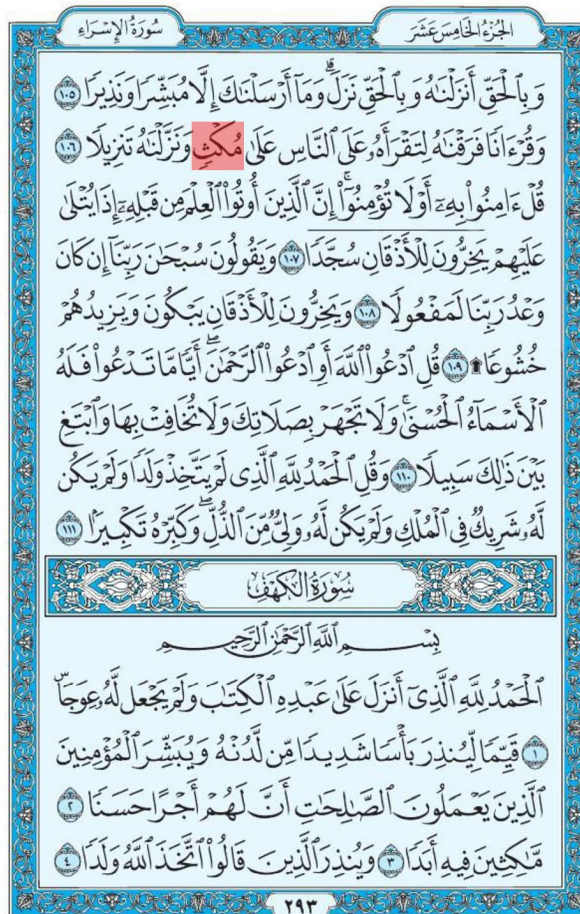 الجُزْءُ الخَامِسَ عَشَرَ
سُورَةُ الإِسْرَاءِ
وَبِٱلْحَقِّ أَنزَلْنَٰهُ وَبِٱلْحَقِّ نَزَلَ ۗ وَمَآ أَرْسَلْنَٰكَ إِلَّا مُبَشِّرًا وَنَذِيرًا ١٠٥
وَقُرْءَانًا فَرَقْنَٰهُ لِتَقْرَأَهُۥ عَلَى ٱلنَّاسِ عَلَىٰ مُكْثٍ وَنَزَّلْنَٰهُ تَنزِيلًا ١٠٦
قُلْ ءَامِنُوا۟ بِهِۦٓ أَوْ لَا تُؤْمِنُوٓا۟ ۚ إِنَّ ٱلَّذِينَ أُوتُوا۟ ٱلْعِلْمَ مِن قَبْلِهِۦٓ إِذَا يُتْلَىٰ
عَلَيْهِمْ يَخِرُّونَ لِلْأَذْقَانِ سُجَّدًا ١٠٧ وَيَقُولُونَ سُبْحَٰنَ رَبِّنَآ إِن كَانَ
وَعْدُ رَبِّنَا لَمَفْعُولًا ١٠٨ وَيَخِرُّونَ لِلْأَذْقَانِ يَبْكُونَ وَيَزِيدُهُمْ
خُشُوعًا ۩ ١٠٩ قُلِ ٱدْعُوا۟ ٱللَّهَ أَوِ ٱدْعُوا۟ ٱلرَّحْمَٰنَ ۖ أَيًّا مَّا تَدْعُوا۟ فَلَهُ
ٱلْأَسْمَآءُ ٱلْحُسْنَىٰ ۚ وَلَا تَجْهَرْ بِصَلَاتِكَ وَلَا تُخَافِتْ بِهَا وَٱبْتَغِ
بَيْنَ ذَٰلِكَ سَبِيلًا ١١٠ وَقُلِ ٱلْحَمْدُ لِلَّهِ ٱلَّذِى لَمْ يَتَّخِذْ وَلَدًا وَلَمْ يَكُن
لَّهُۥ شَرِيكٌ فِى ٱلْمُلْكِ وَلَمْ يَكُن لَّهُۥ وَلِىٌّ مِّنَ ٱلذُّلِّ ۖ وَكَبِّرْهُ تَكْبِيرًۢا ١١١
سُورَةُ الكَهْفِ
بِسْمِ ٱللَّهِ ٱلرَّحْمَٰنِ ٱلرَّحِيمِ
ٱلْحَمْدُ لِلَّهِ ٱلَّذِىٓ أَنزَلَ عَلَىٰ عَبْدِهِ ٱلْكِتَٰبَ وَلَمْ يَجْعَل لَّهُۥ عِوَجَاۜ
١ قَيِّمًا لِّيُنذِرَ بَأْسًا شَدِيدًا مِّن لَّدُنْهُ وَيُبَشِّرَ ٱلْمُؤْمِنِينَ
ٱلَّذِينَ يَعْمَلُونَ ٱلصَّٰلِحَٰتِ أَنَّ لَهُمْ أَجْرًا حَسَنًا ٢
مَّٰكِثِينَ فِيهِ أَبَدًا ٣ وَيُنذِرَ ٱلَّذِينَ قَالُوا۟ ٱتَّخَذَ ٱللَّهُ وَلَدًا ٤
٢٩٣